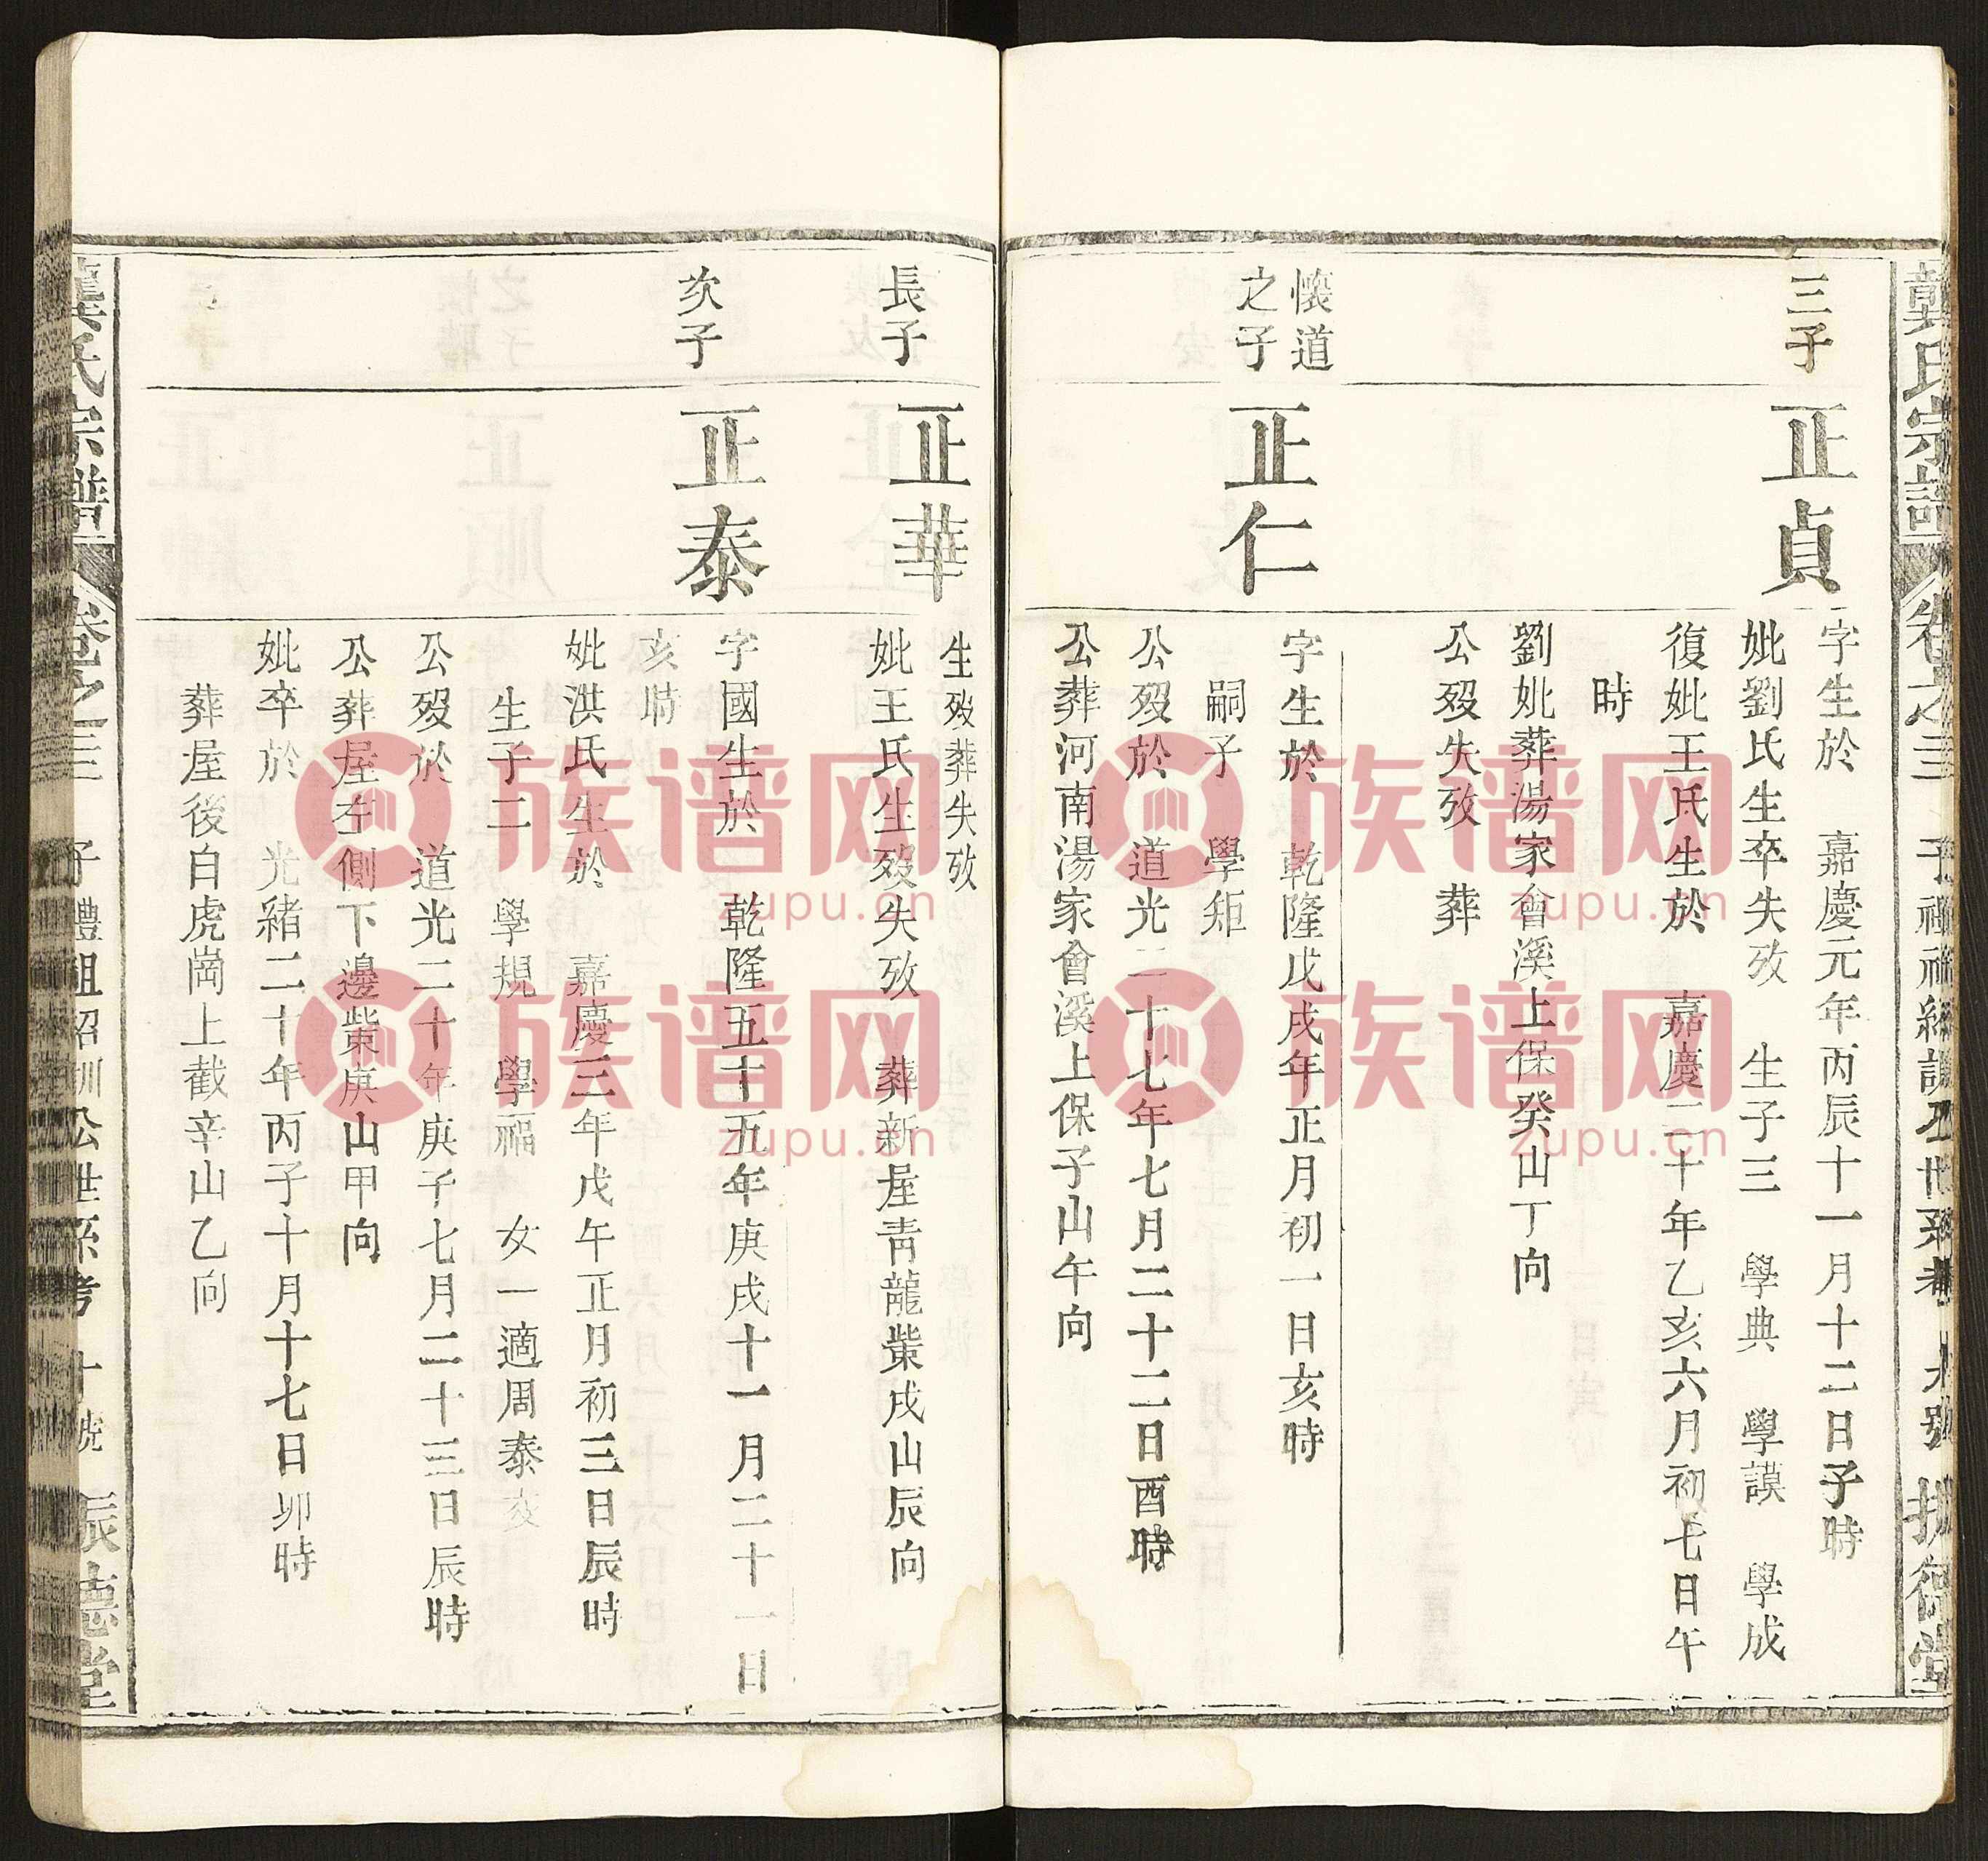 龔氏宗譜
卷之三
九號
三子
正貞
字生於 嘉慶元年丙辰十一月十二日子時
妣劉氏生卒失攷 生子三 學典 學謨 學成
復妣王氏生於 嘉慶二十年乙亥六月初七日午
時
劉妣葬湯家會溪上保癸山丁向
公歿失攷 葬
懷道
之子
正仁
字生於 乾隆戊戌年正月初一日亥時
嗣子 學矩
公歿於 道光二十七年七月二十二日酉時
公葬河南湯家會溪上保子山午向
長子
正華
生歿葬失攷
妣王氏生歿失攷 葬新屋青龍㭰戌山辰向
次子
正泰
字國生於 乾隆五十五年庚戌十一月二十一日
亥時
妣洪氏生於 嘉慶三年戊午正月初三日辰時
生子二 學規 學福 女一適周泰交
公歿於 道光二十年庚子七月二十三日辰時
公葬屋左側下邊㭰庚山甲向
妣卒於 光緒二十年丙子十月十七日卯時
葬屋後白虎崗上截辛山乙向
龔氏宗譜
卷之三
子禮祖紹訓公世系考
十號
振德堂
族谱网
zupu.cn
族谱网
zupu.cn
族谱网
zupu.cn
族谱网
zupu.cn